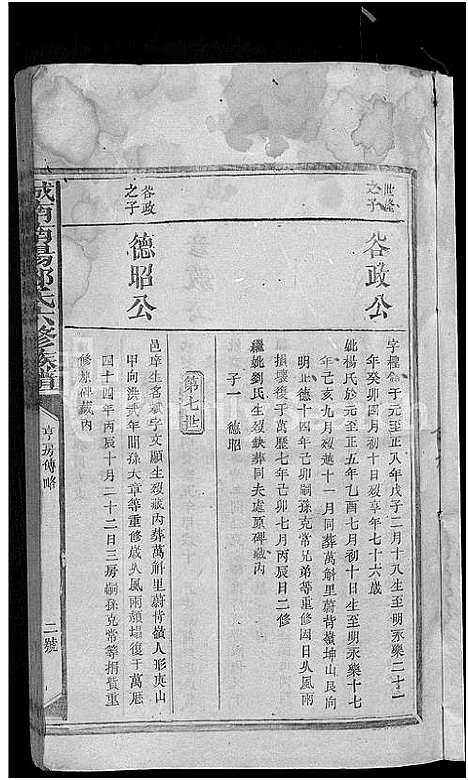 世隆之子
峇政公
字檀於元至正八年戊子二月十八生至明永樂二十一
年癸卯四月初十日歿享年七十六歲
妣楊氏於元至正五年乙酉七月初十日生至明永樂十七
年己亥九月歿越十一月同葬萬斛里蔚背嶺坤山艮向
明正德十四年己卯嗣孫克常兄弟等重修因日久風雨
損壞復于萬歷七年己卯七月丙辰日二修
繼姚劉氏生歿缺葬同夫處原碑藏內
子一 德昭
第七世
峇政之子
德昭公
邑庠生名斌字文顯生歿藏內葬萬斛里蔚背嶺人形夾山
甲向洪武年間孫大章等重修歲久風雨頹塌復于萬歷
四十四年丙辰十月二十二日三房嗣孫克常等捐貲重
修原碑藏內
城南南陽鄧氏六修族譜
亨房傳略
二號